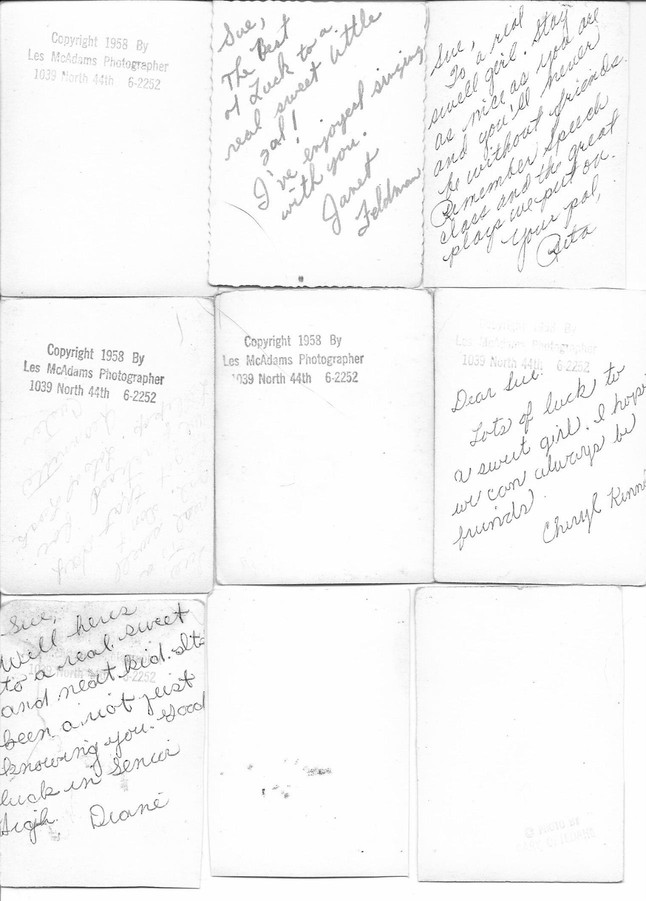 Copyright 1958 By
Les McAdams Photographer
1039 North 44th 6-2252
Sue,
The Best
of Luck to a
real sweet little
gal!
I've enjoyed singing
with you.
Janet
Feldman
Sue,
To a real
swell girl. Stay
as nice as you are
and you'll never
be without friends.
Remember Speech
class and the great
plays we put on.
Your pal,
Rita
Copyright 1958 By
Les McAdams Photographer
1039 North 44th 6-2252
Copyright 1958 By
Les McAdams Photographer
1039 North 44th 6-2252
Les McAdams Photographer
6-2252
Dear Sue.
Lots of luck to
a sweet girl. I hope
we can always be
friends.
Cheryl
Sue,
Well heres
to a real sweet
and neat kid. Its
6-2252
been a riot just
knowing you. Good
luck in Senior
High.
Diane